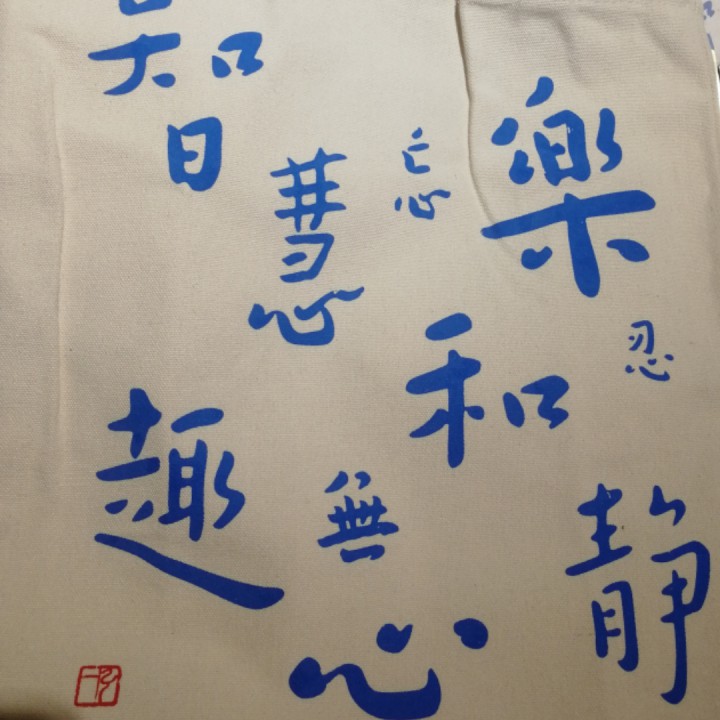 智
慧
忘
樂
和
忍
趣
無
靜
心